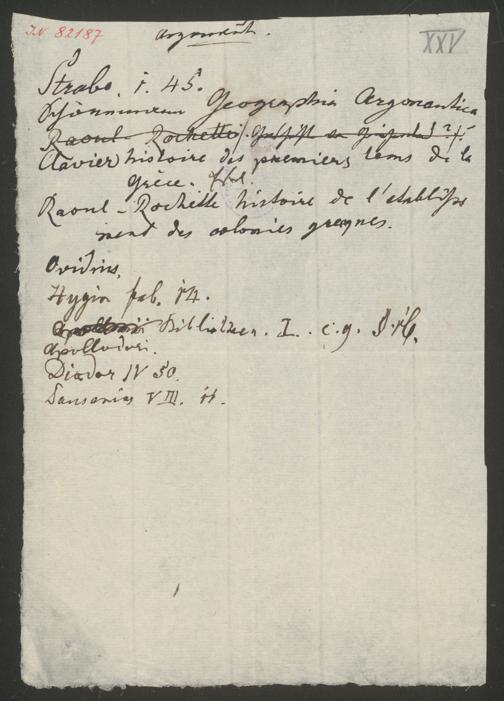 I.N. 82187
XXV
Argonaut.
Strabo. I. 45.
Schönemann Geographia Argonautica
Raoul-Rochette.
Clavier histoire des premiers tems de la
Grèce.
Raoul-Rochette histoire de l'établisse
ment des colonies grecques.
Ovidius.
Hygin fab. 14.
Bibliothec. I. c. 9.
Apollodori.
Diodor IV 50.
Pausanias VIII. 11.